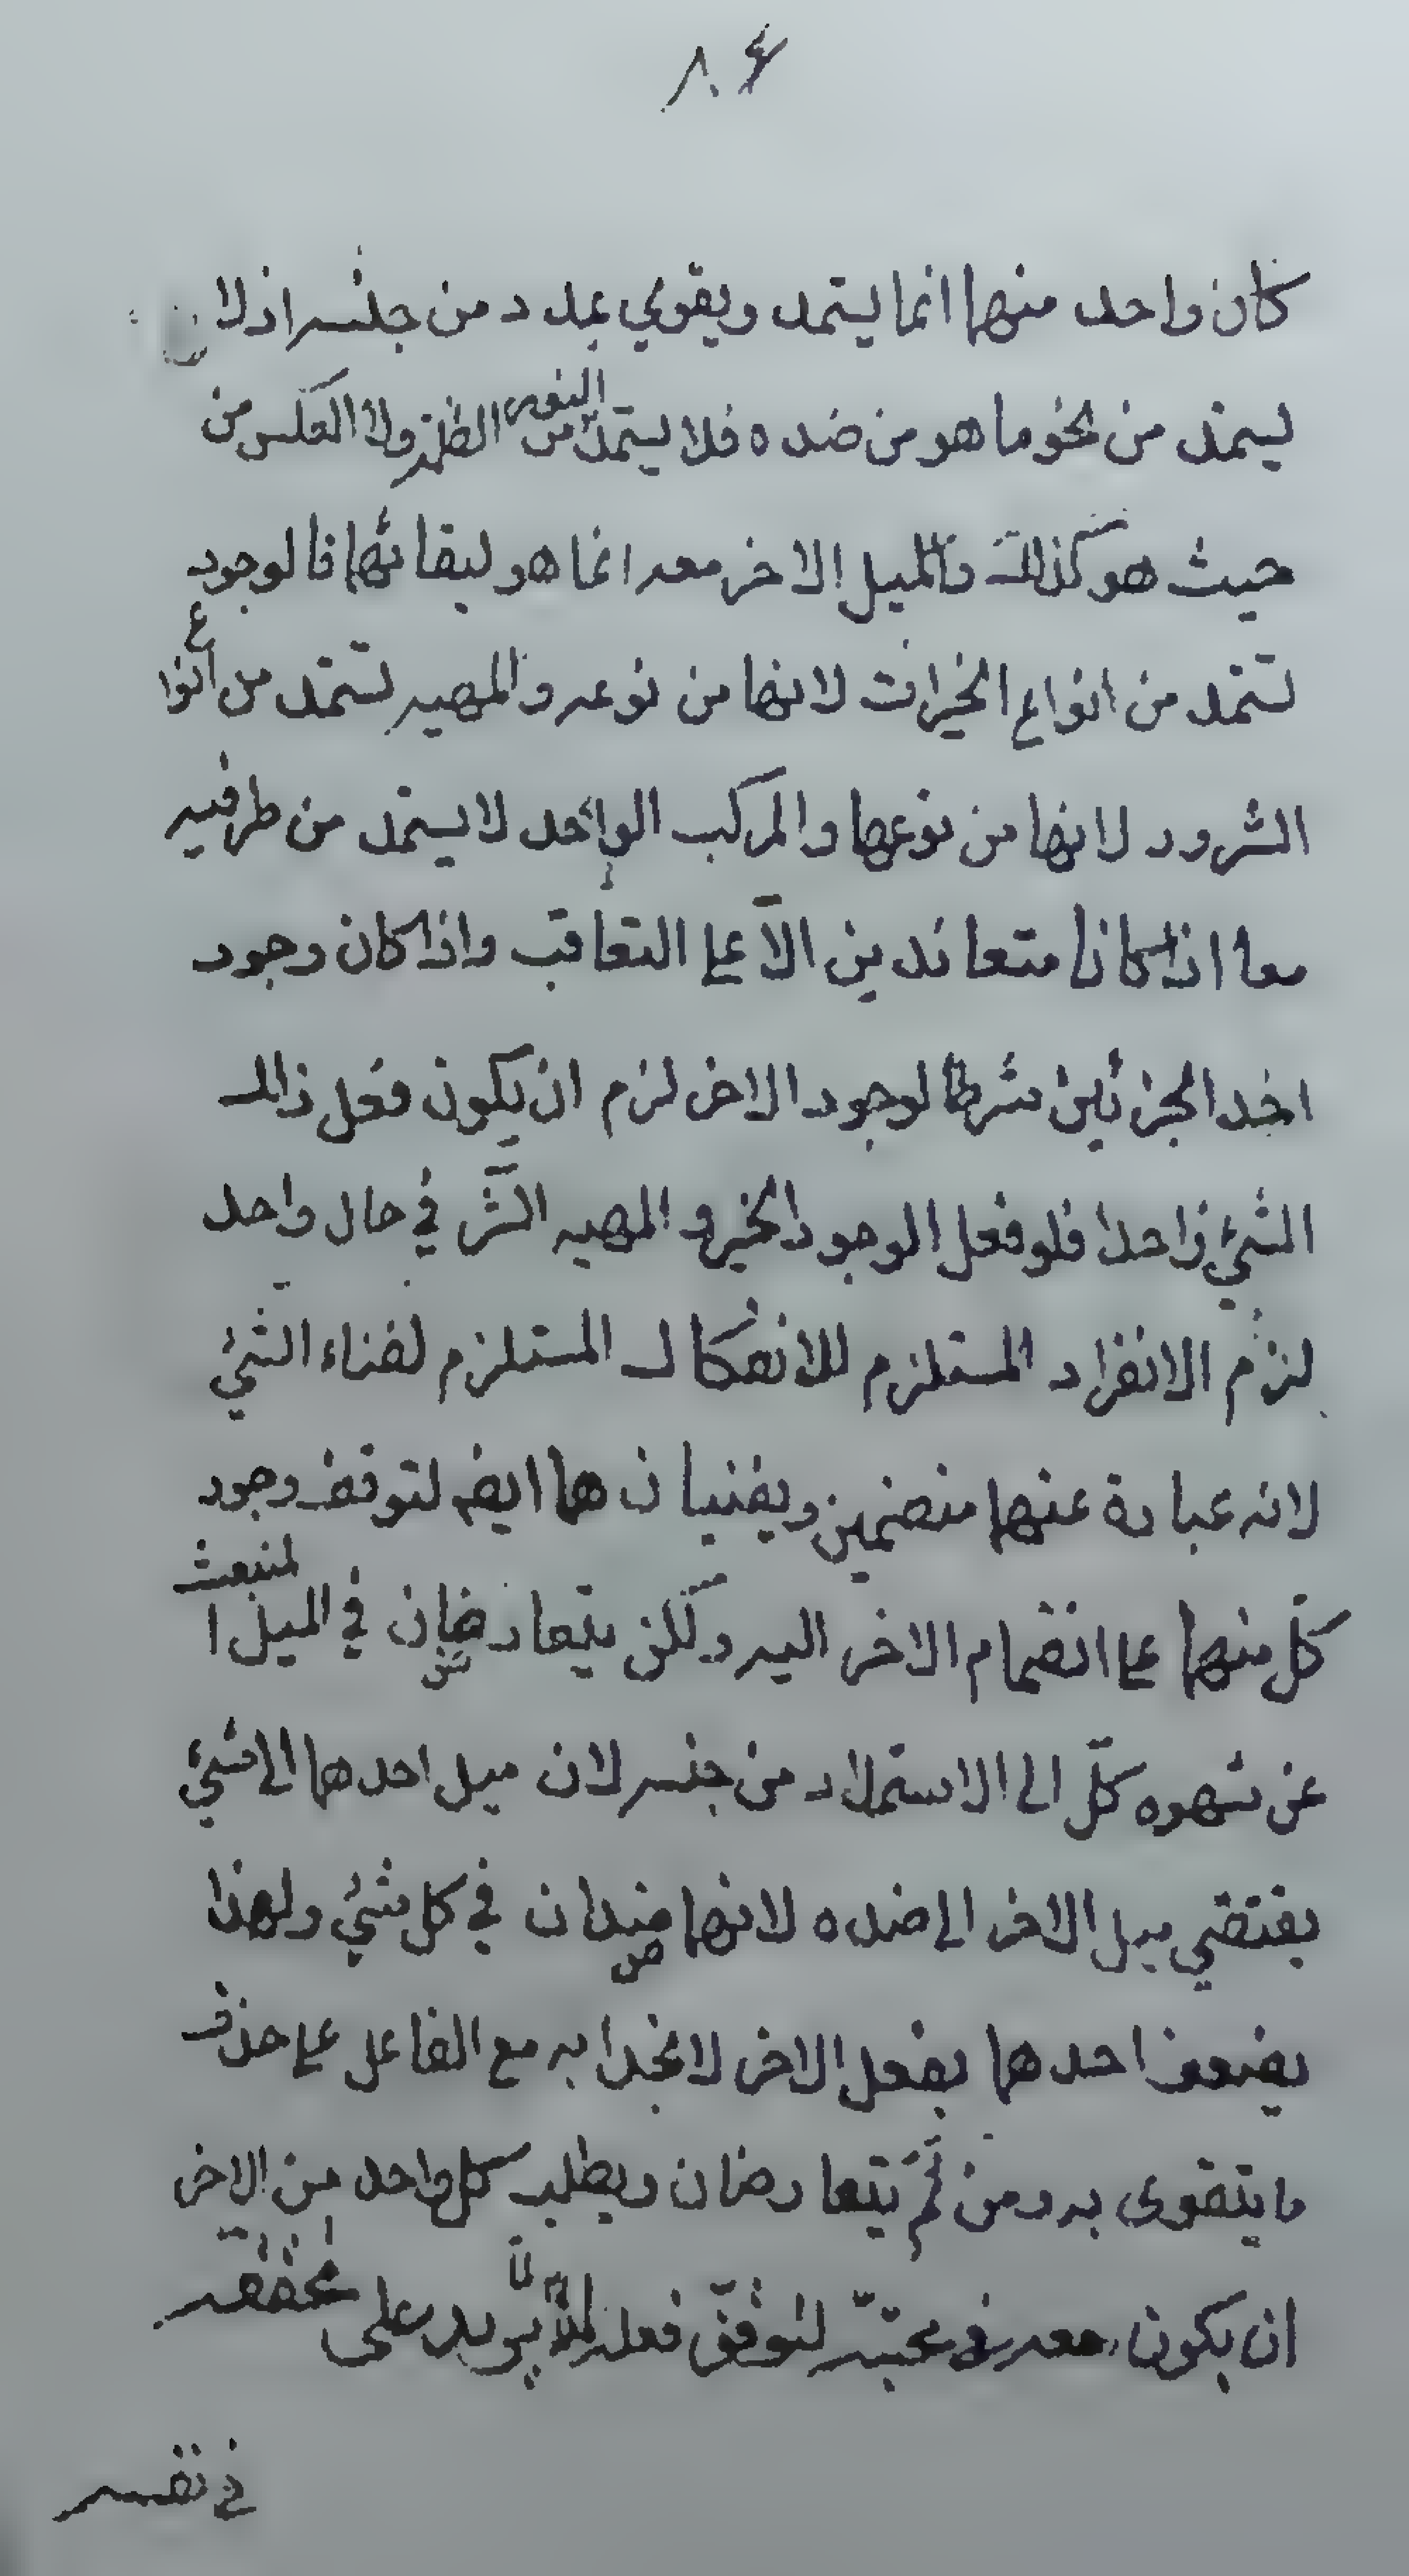 ٨٤
كان واحد منهما انما يستمد ويقوي بمدد من جنسه اذ لا
يستمد من نحو ما هو من ضده فلا يستمد النور من الظلمة ولا العكس من
حيث هو كذلك والميل الاخر معه انما هو لبقائهما فالوجود
تستمد من انواع الخيرات لانها من نوعه والمهيه تستمد من انواع
الشرور لانها من نوعها والمركب الواحد لا يستمد من طرفيه
معا اذا كانا متعاندين الّا على التعاقب واذا كان وجود
احد الجزئين شرطا لوجود الاخر لزم ان يكون فعل ذلك
الشيئ واحدا فلو فعل الوجود الخير والمهيه الشّر في حال واحد
لزم الانفراد المستلزم للانفكاك المستلزم لفناء الشيئ
لانه عبارة عنهما منضمين ويفنيان هما ايضه لتوقف وجود
كلّ منهما على انضمام الاخر اليه ولكن يتعارضان في الميل المنبعث
عن شهوه كلّ الى الاستمداد من جنسه لان ميل احدهما الى شيئ
يقتضي ميل الاخر الى ضده لانهما ضدان في كل شيئ ولهذا
يضعف احدهما بفعل الاخر لانجذابه مع الفاعل على خلاف
ما يتقوى به ومن ثَمّ يتعارضان ويطلب كل واحد من الاخر
ان يكون معه في محبّته ليوفّق فعله لئلّا يريد على
في نفسه